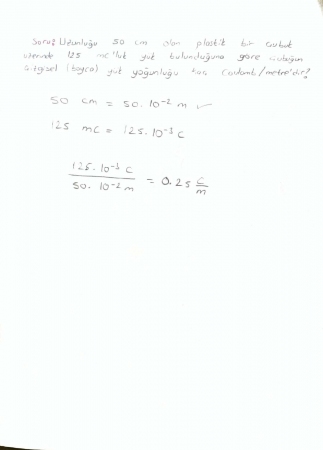 Soru: Uzunluğu 50 cm olan plastik bir çubuk
üzerinde 125 mC'luk yük bulunduğuna göre çubuğun
çizgisel (boyca) yük yoğunluğu kaç Coulomb/metre'dir?
50 cm = 50.10⁻² m ✓
125 mC = 125.10⁻³ C
125.10⁻³ C
50.10⁻² m
= 0.25 C/m